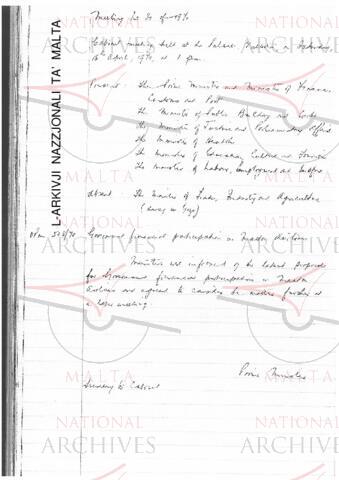 Meeting No 30 of 1970
Cabinet meeting held at the Palace, Valletta on Saturday,
April, 1970, at 1 p.m.
Present: The Prime Minister and Minister of Finance,
Customs and Port
The Minister of Public Building and Works
The Minister of Justice and Parliamentary Affairs
The Minister of Health
The Minister of Education, Culture and Tourism
The Minister of Labour, Employment and Welfare
Absent: The Minister of Trade, Industry and Agriculture
(away in Gozo)
Government financial participation in Airlines
Ministers were informed of the latest proposals
for Government financial participation in
Airlines and agreed to consider the matter further at
a later meeting.
Prime Minister
Secretary to Cabinet
L-ARKIVJI NAZZJONALI TA' MALTA
NATIONAL
MALTA
ARCHIVES
NATIONAL
MALTA
ARCHIVES
NATIONAL
ARCHIVES
NATIONAL
ARCHIVES
MALTA
MALTA
NATIONAL
ARCHIVES
NATIONAL
ARCHIVES